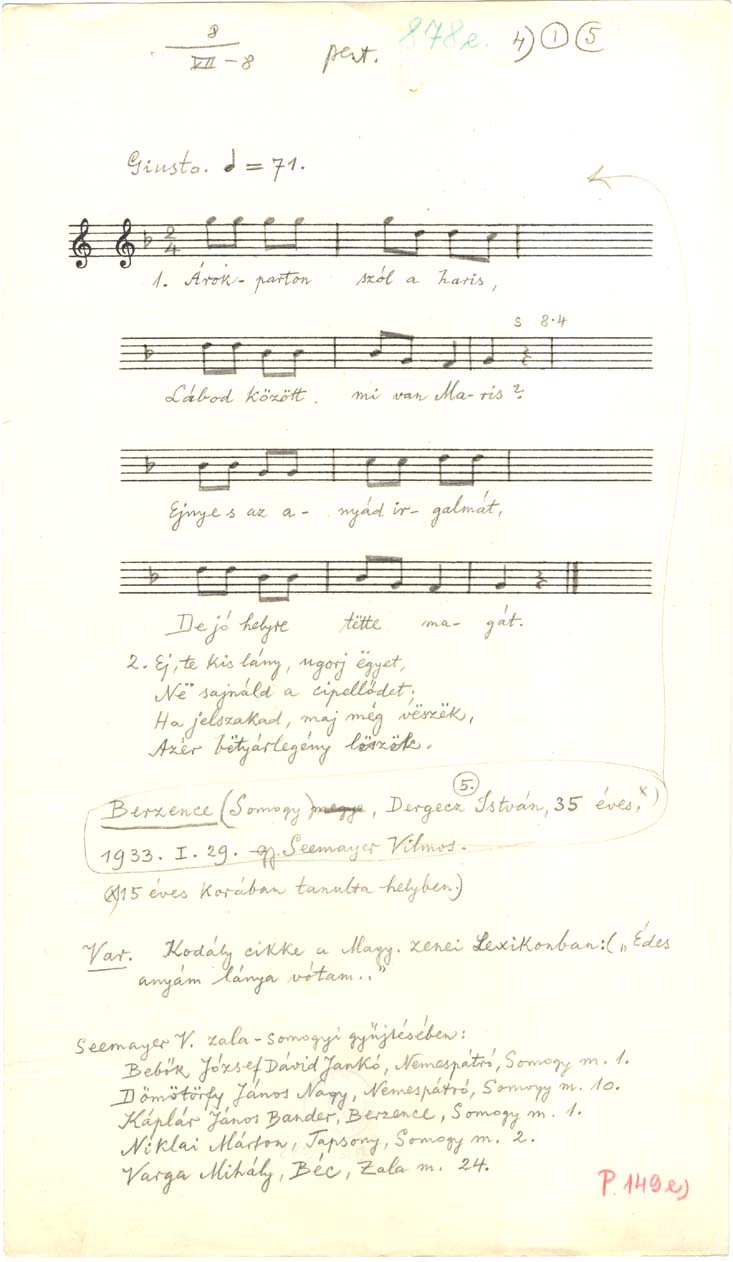 8
VII - 8 pent. 878e. 4) 1 5
Giusto. = 71.
2
4
1. Árok- parton szól a haris,
s 8·4
Lábod között mi van Ma- ris?
Ejnye s az a- nyád ir- galmát,
De jó helyre tëtte ma- gát.
2. Ej, te kis lány, ugorj ëgyet,
Në sajnáld a cipellődet;
Ha jelszakad, maj még vëszëk,
Azér bëtyárlegény lëszëk.
5.
Berzence (Somogy) megye, Dergecz István, 35 éves, x)
1933. I. 29. gy. Seemayer Vilmos.
(x) 15 éves korában tanulta helyben.)
Var. Kodály cikke a Magy. zenei Lexikonban: („Édes
anyám lánya vótam.."
Seemayer V. zala-somogyi gyüjtésében:
Bebők József Dávid Jankó, Nemespátró, Somogy m. 1.
Dömötörfy János Nagy, Nemespátró, Somogy m. 10.
Káplár János Bander, Berzence, Somogy m. 1.
Niklai Márton, Tapsony, Somogy m. 2.
Varga Mihály, Béc, Zala m. 24.
P. 149e)